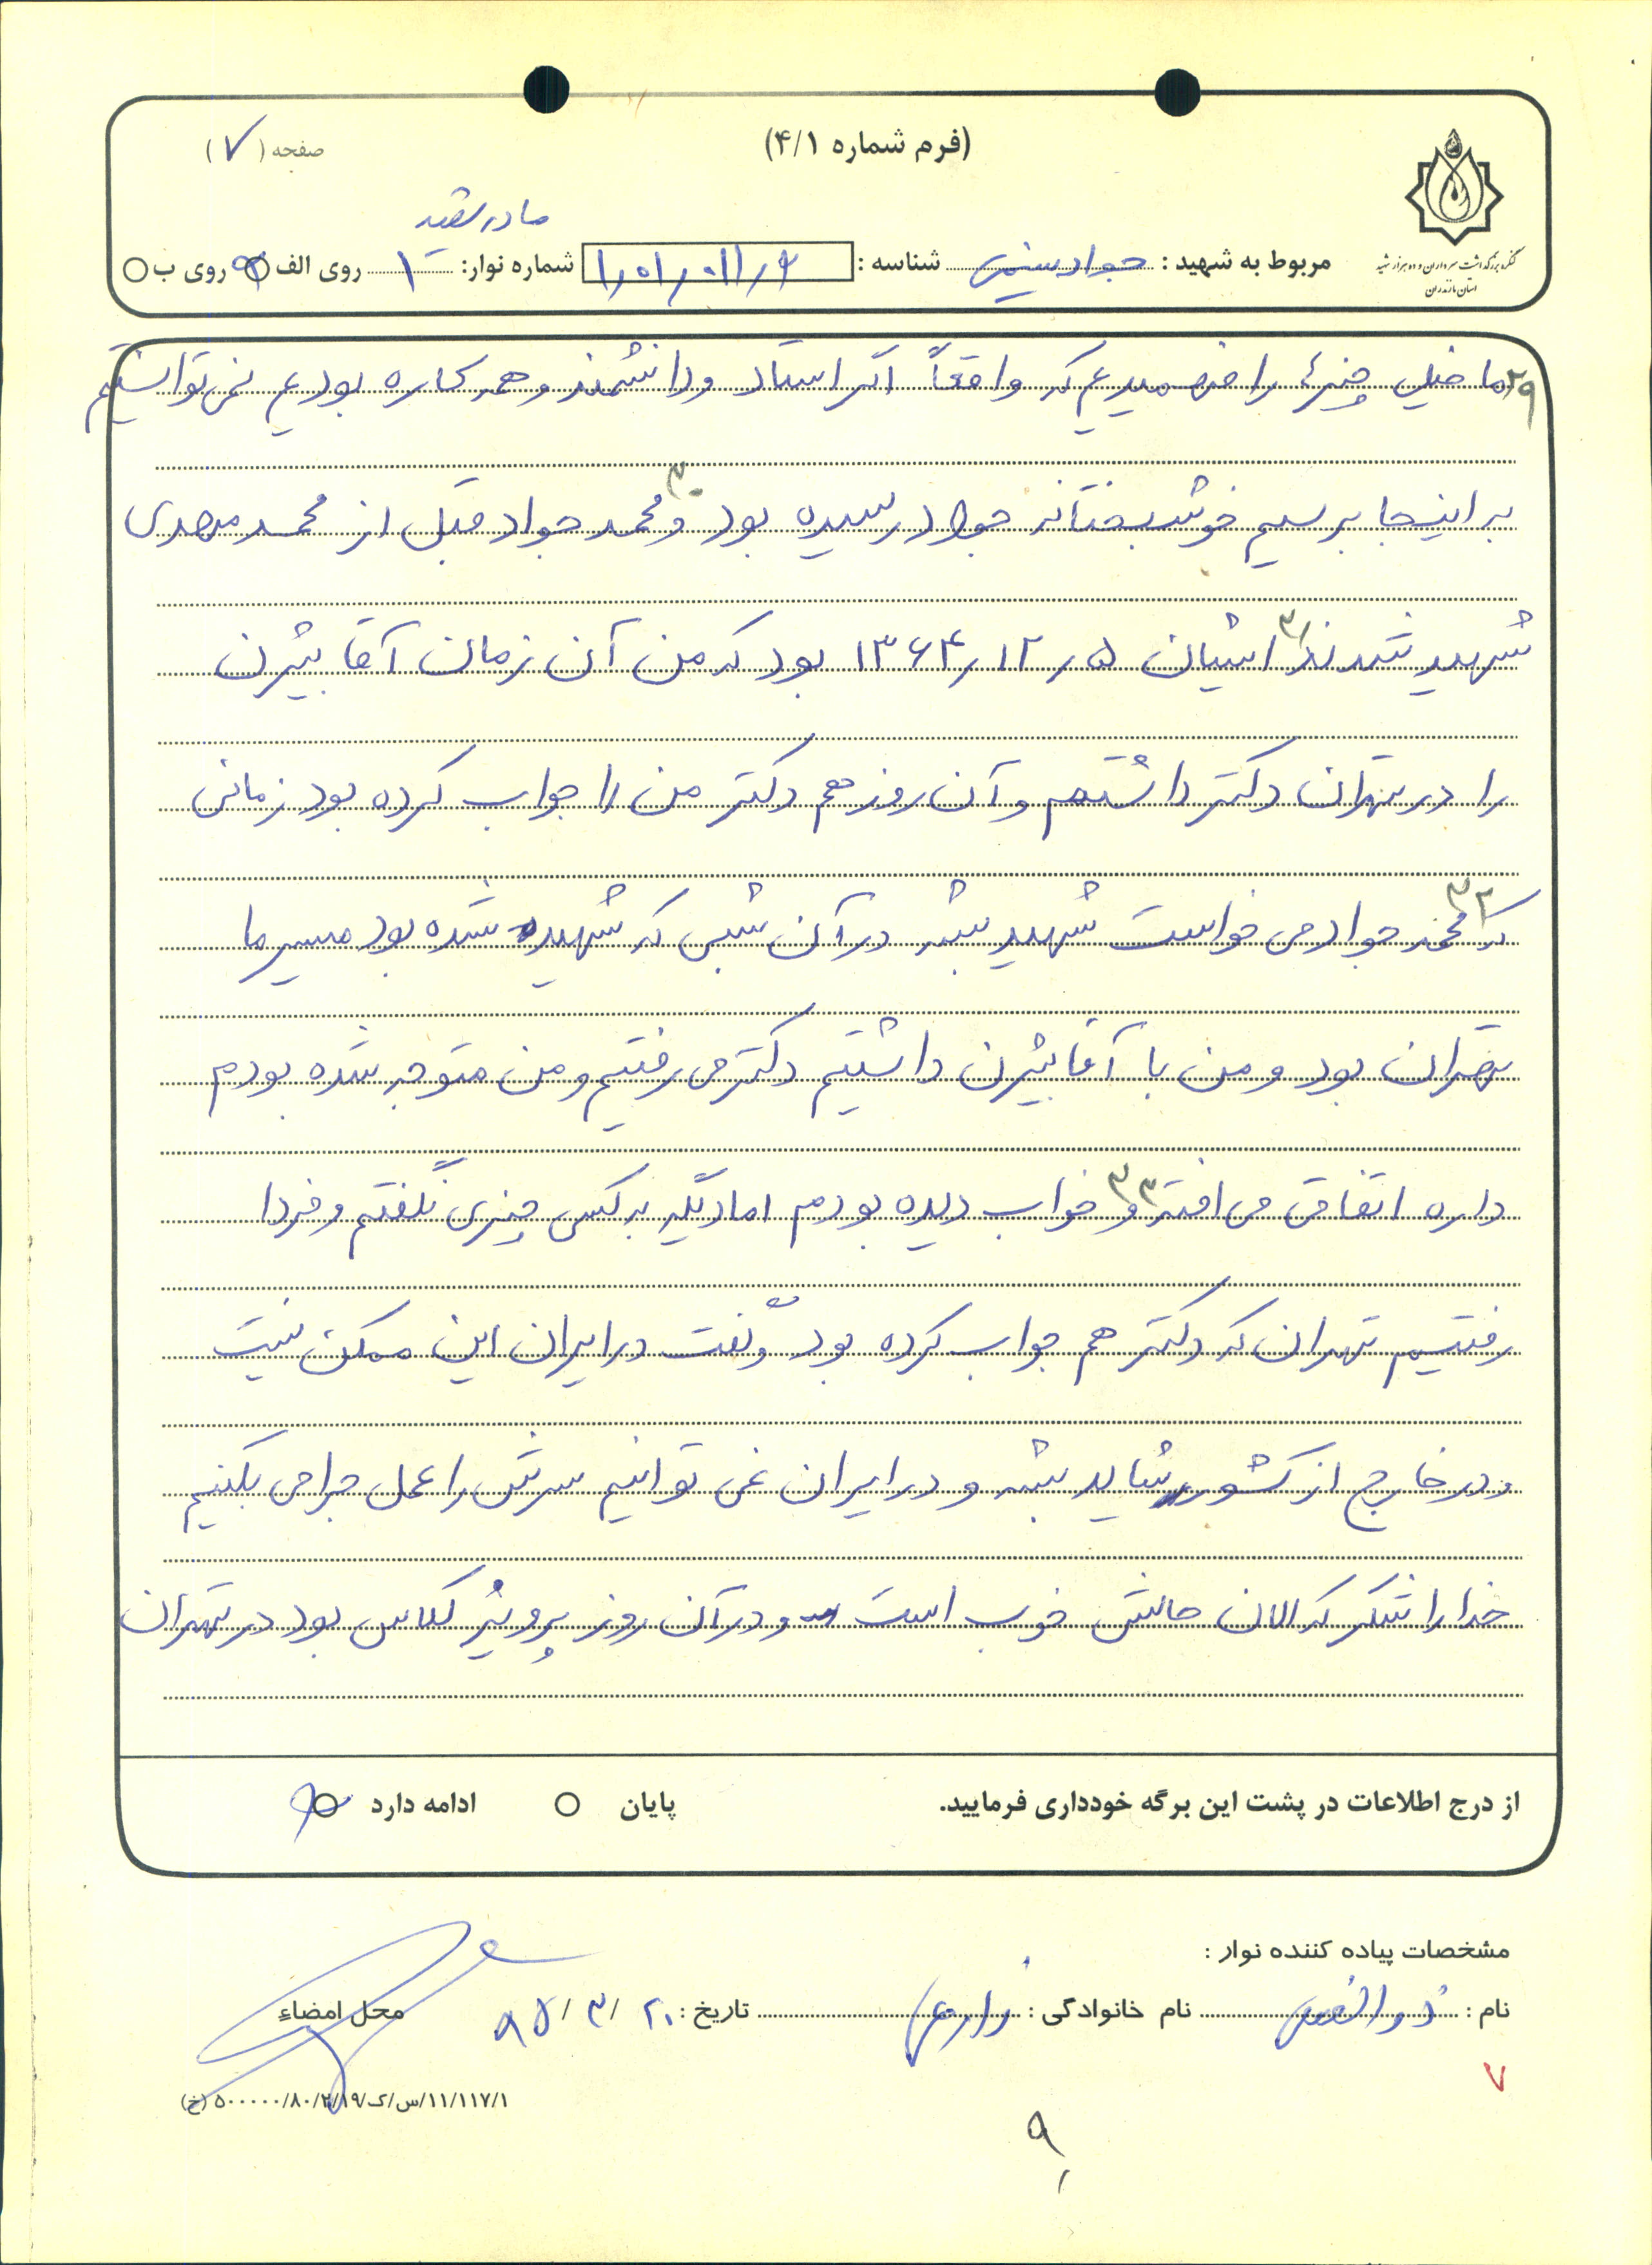 (فرم شماره ۴/۱)
صفحه (۷)
کنگره بزرگداشت سرداران و ده هزار شهید
استان مازندران
مادر شهید
مربوط به شهید : جواد شناسه : شماره نوار: ۱ روی الف روی ب
۲۹ ما خیلی چیزها را فهمیدیم که واقعاً اگر استاد و دانشمند و همه کاره بودیم نمی توانستیم
به اینجا برسیم خوشبختانه جواد رسیده بود ۳۰ و محمد جواد قبل از محمد مهدی
شهید شدند ۳۱ ایشان ۵ ر ۱۲ ر ۱۳۶۴ بود که من آن زمان آقا بیژن
را در تهران دکتر داشتم و آن روز هم دکتر من را جواب کرده بود زمانی
که ۳۲ محمد جواد می خواست شهید بشه در آن شبی که شهید شده بود مسیر ما
تهران بود و من با آقا بیژن داشتیم دکتر می رفتیم و من متوجه شده بودم
داره اتفاقی می افته ۳۳ و خواب دیده بودم اما دیگه به کسی چیزی نگفتم و فردا
رفتیم تهران که دکتر هم جواب کرده بود و گفت در ایران این ممکن نیست
و در خارج از کشور شاید بشه و در ایران نمی توانیم سرش را عمل جراحی بکنیم
خدا را شکر که الان حالش خوب است و در آن روز پرویز کلاس بود در تهران
از درج اطلاعات در پشت این برگه خودداری فرمایید. پایان ادامه دارد
مشخصات پیاده کننده نوار :
نام : نام خانوادگی : زارعی تاریخ : ۲۰ / ۳ / ۸۵ محل امضاء
۷
۱۱/۱۱۷/۱/س/ک/۸۰/۲/۱۹/۵۰۰۰۰۰ (خ)
۹